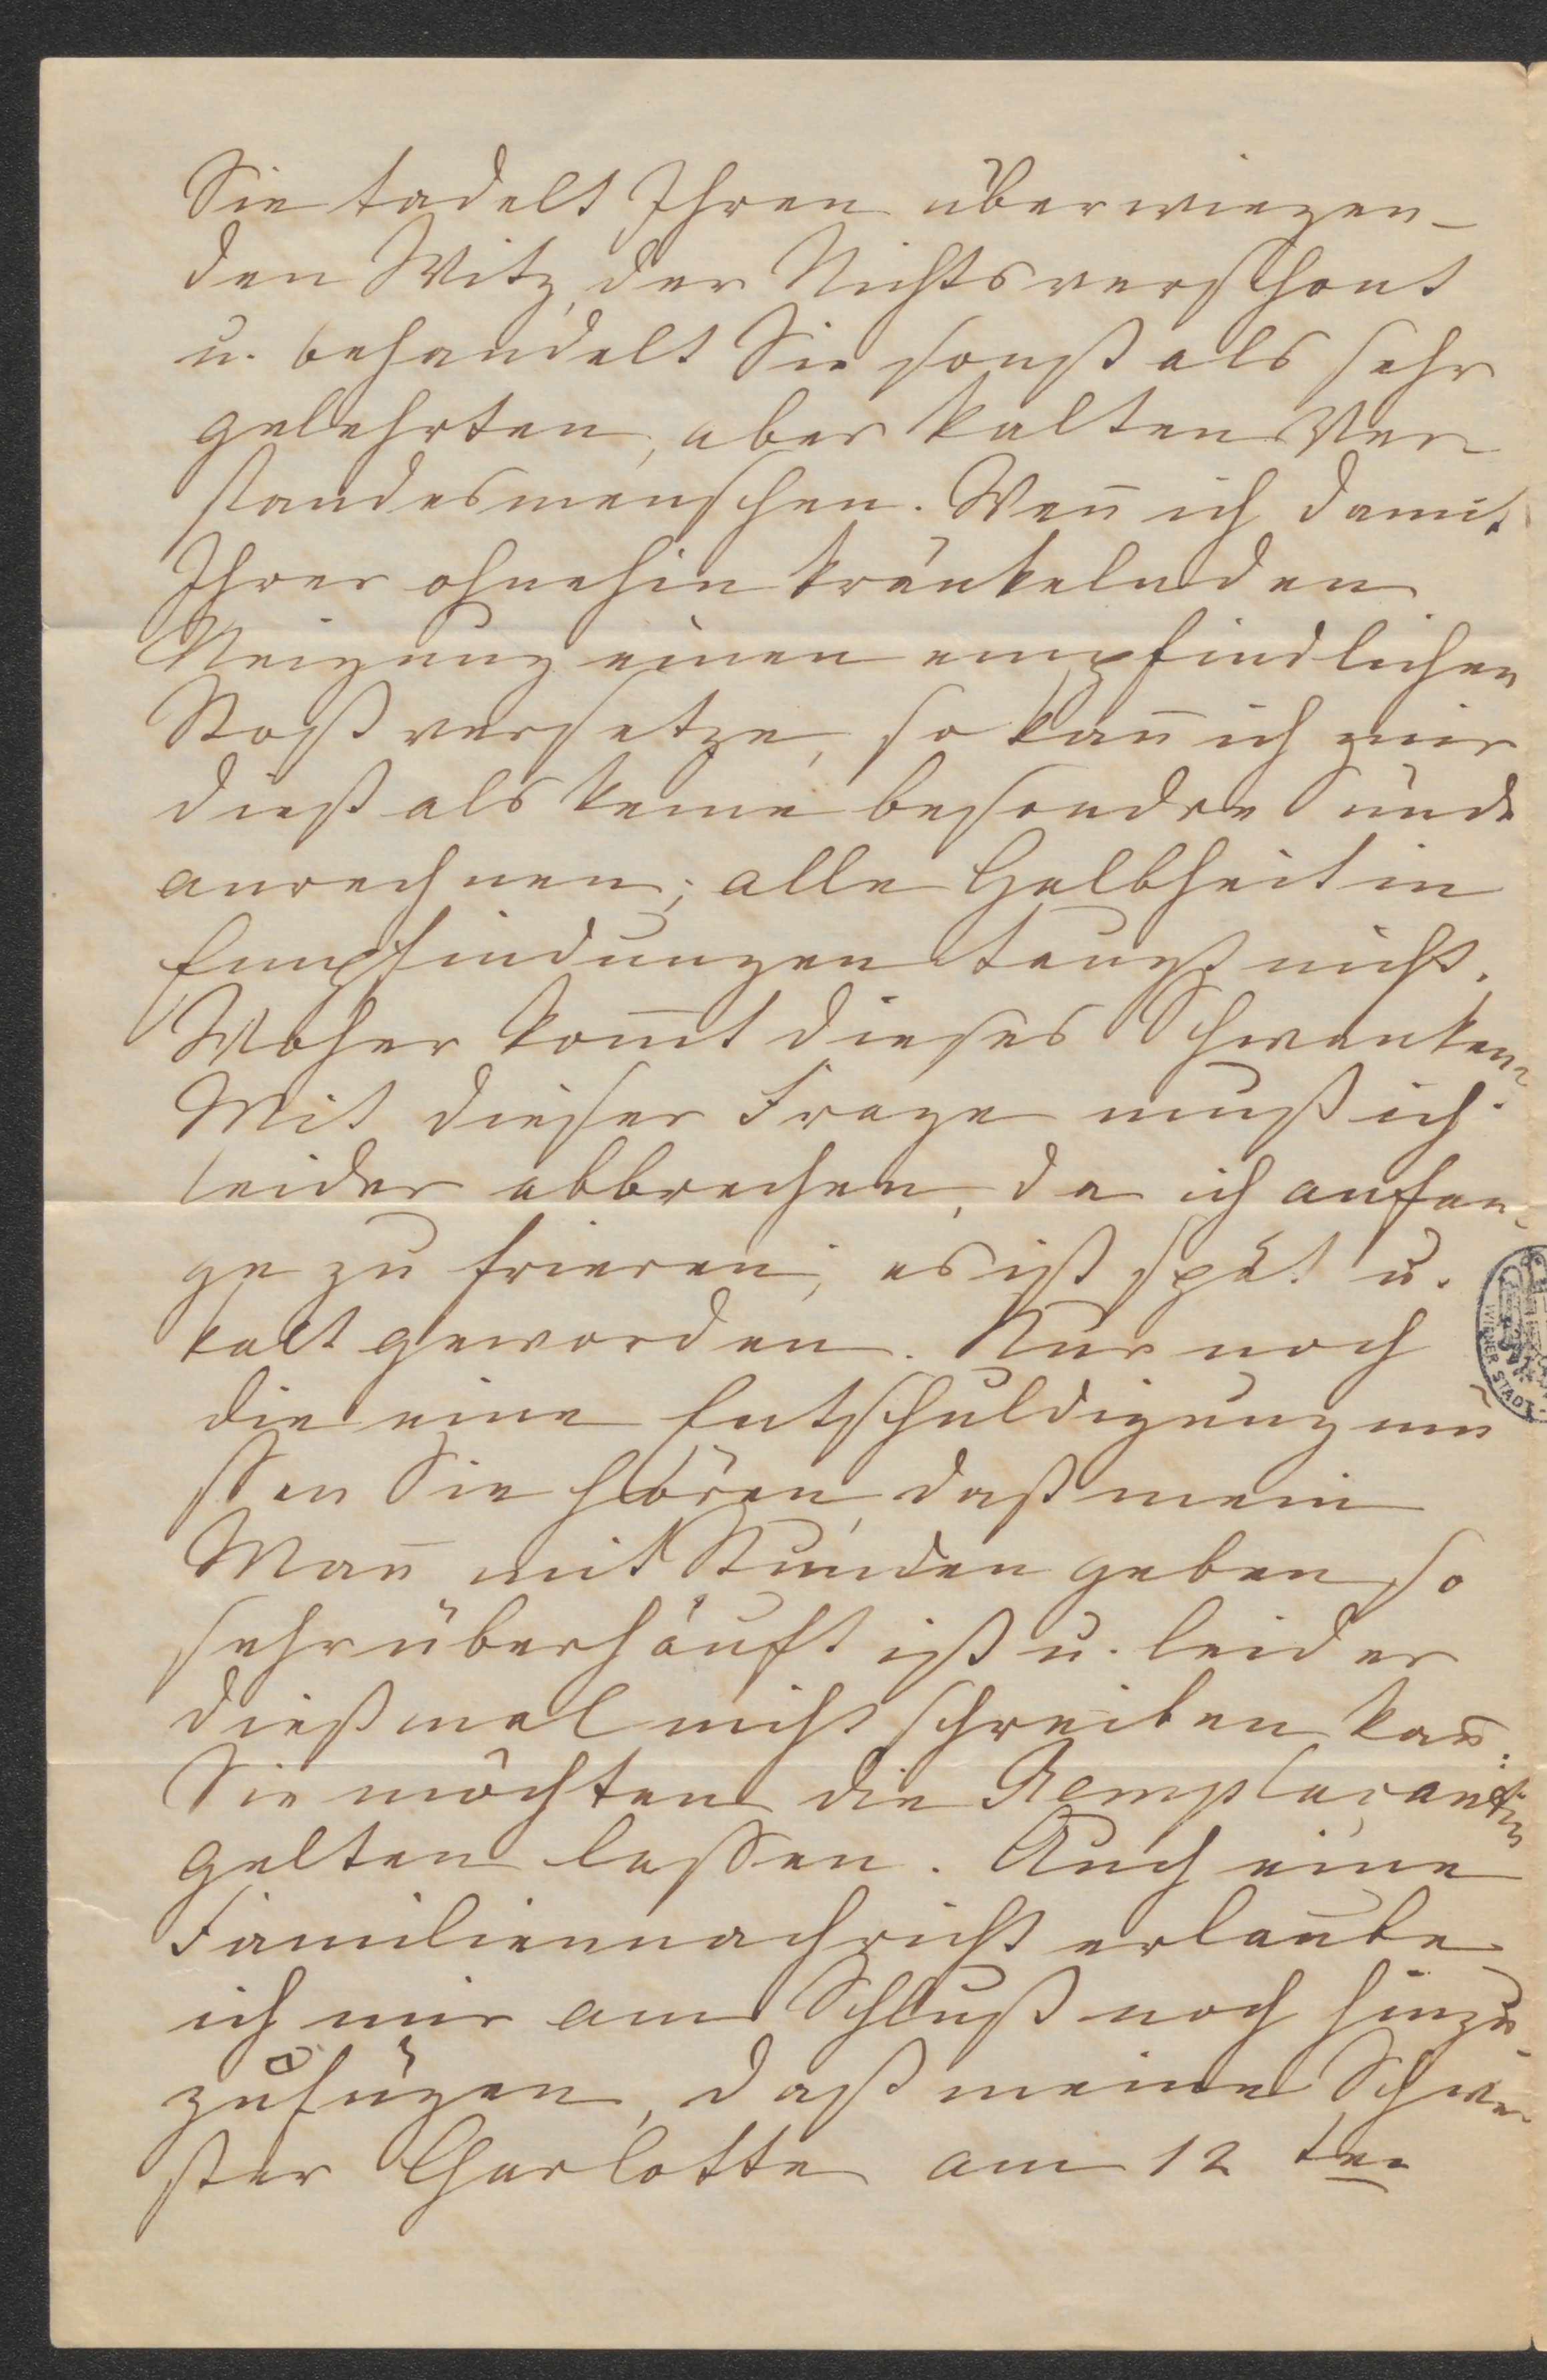 Sie tadelt Ihren überwiegen-
den Witz, der Nichts verschont
u. behandelt Sie sonst als sehr
gelehrten, aber kalten Ver-
standesmenschen. Weñ ich damit
Ihrer ohnehin kränkelnden
Neigung einen empfindlichen
Stoß versetze, so kañ ich mir
dieß als keine besondre Sünde
anrechnen; alle Halbheit in
Empfindungen taugt nicht.
Woher kom̄t dieses Schwanken?
Mit dieser Frage muß ich
leider abbrechen, da ich anfan-
ge zu frieren; es ist spät u.
kalt geworden. Nur noch
die eine Entschuldigung mü
ssen Sie hören, daß mein
Mañ mit Stunden geben so
sehr überhäuft ist u. leider
dießmal nicht schreiben kañ:
Sie möchten die Remplaçantin
gelten lassen. Auch eine
Familiennachricht erlaube
ich mir am Schluß noch hinzu-
zufügen, daß meine Schwe-
ster Charlotte am 12 ten
WIENER STADT-